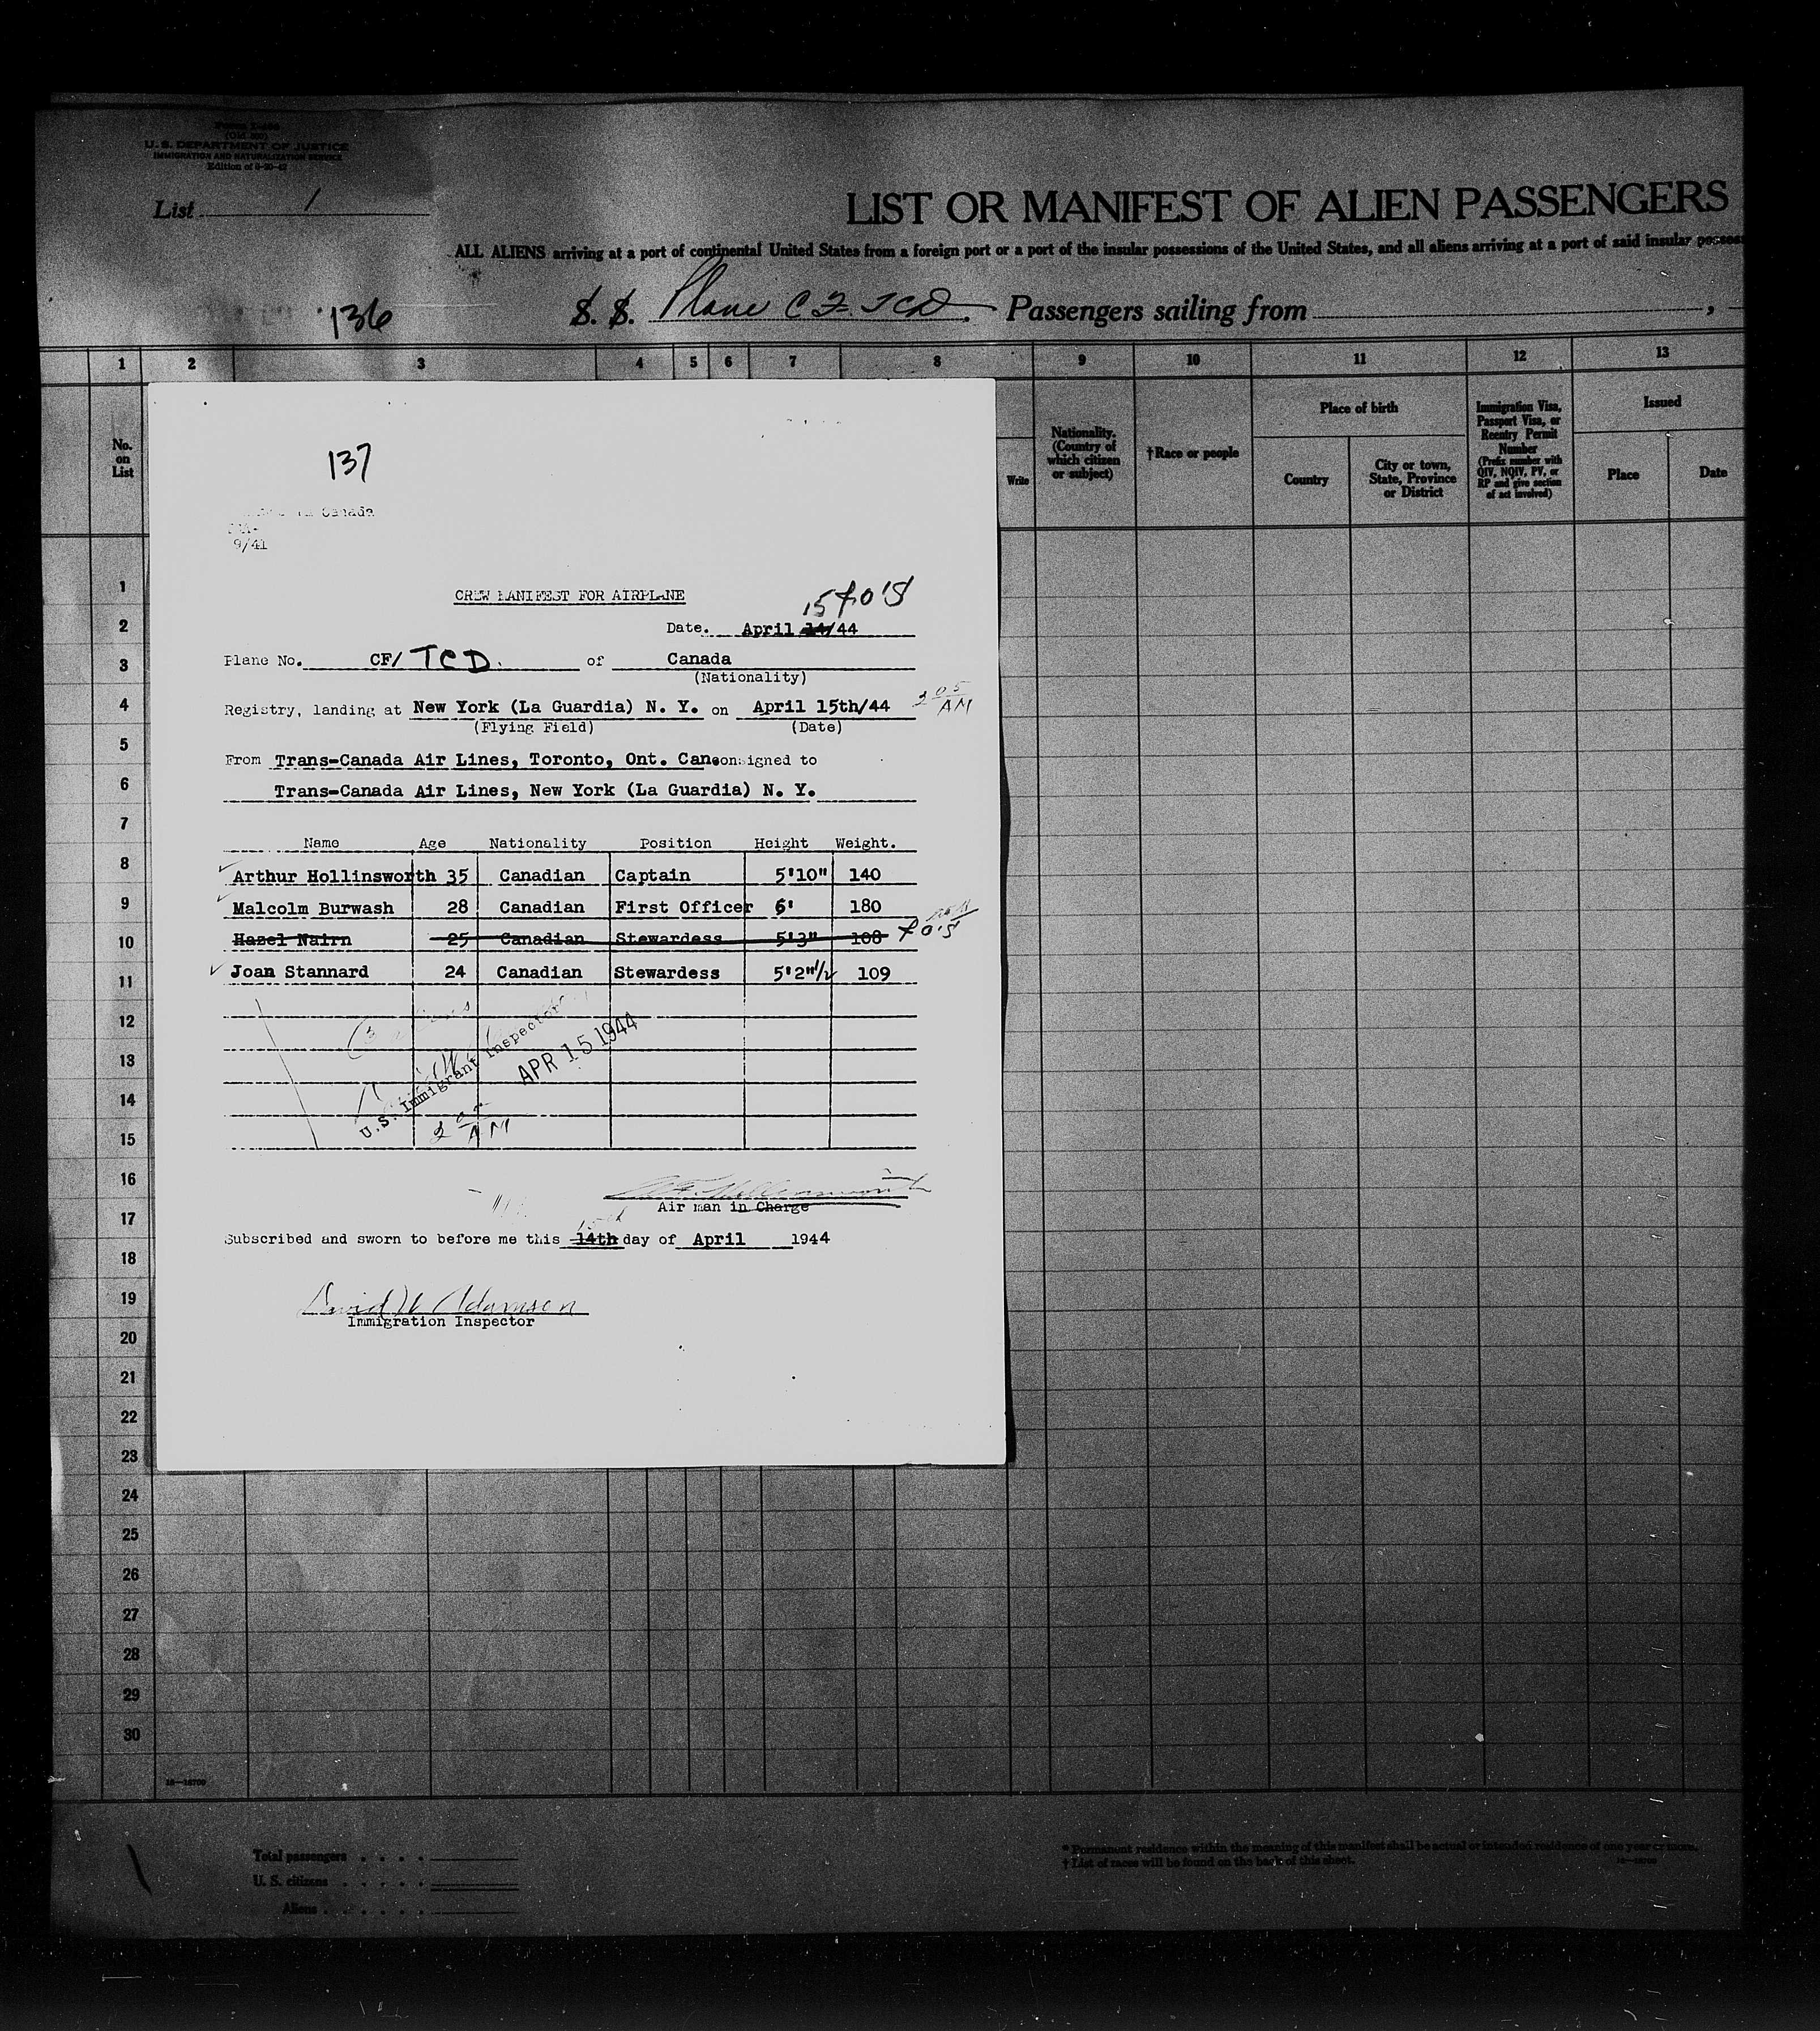 U. S. DEPARTMENT OF JUSTICE
IMMIGRATION AND NATURALIZATION SERVICE
List 1
LIST OR MANIFEST OF ALIEN PASSENGERS
ALL ALIENS arriving at a port of continental United States from a foreign port or a port of the insular possessions of the United States, and all aliens arriving at a port of said insular
136
S. S. Plane CF-TCD. Passengers sailing from
1 2 3 4 5 6 7 8 9 10 11 12 13
No. on List
Write
Nationality. (Country of which citizen or subject)
† Race or people
Place of birth
Country
City or town, State, Province or District
Immigration Visa, Passport Visa, or Reentry Permit Number
(Prefix number with QIV, NQIV, PV, or RP and give section of act involved)
Issued
Place
Date
137
Canada
9/41
CREW MANIFEST FOR AIRPLANE
15
Date. April 14/44
Plane No. CF/ TCD. of Canada
(Nationality)
Registry, landing at New York (La Guardia) N. Y. on April 15th/44 2 05 AM
(Flying Field) (Date)
From Trans-Canada Air Lines, Toronto, Ont. Canconsigned to
Trans-Canada Air Lines, New York (La Guardia) N. Y.
Name Age Nationality Position Height Weight.
Arthur Hollinsworth 35 Canadian Captain 5'10" 140
Malcolm Burwash 28 Canadian First Officer 6' 180
Hazel Nairn 25 Canadian Stewardess 5'3" 108
Joan Stannard 24 Canadian Stewardess 5'2"1/2 109
U.S. Immigrant Inspector
APR 15 1944
AM
Air man in Charge
15th
Subscribed and sworn to before me this 14th day of April 1944
David W Adamson
Immigration Inspector
1
2
3
4
5
6
7
8
9
10
11
12
13
14
15
16
17
18
19
20
21
22
23
24
25
26
27
28
29
30
Total passengers
U. S. citizens
Aliens
* Permanent residence within the meaning of this manifest shall be actual or intended residence of one year or more.
† List of races will be found on the back of this sheet.